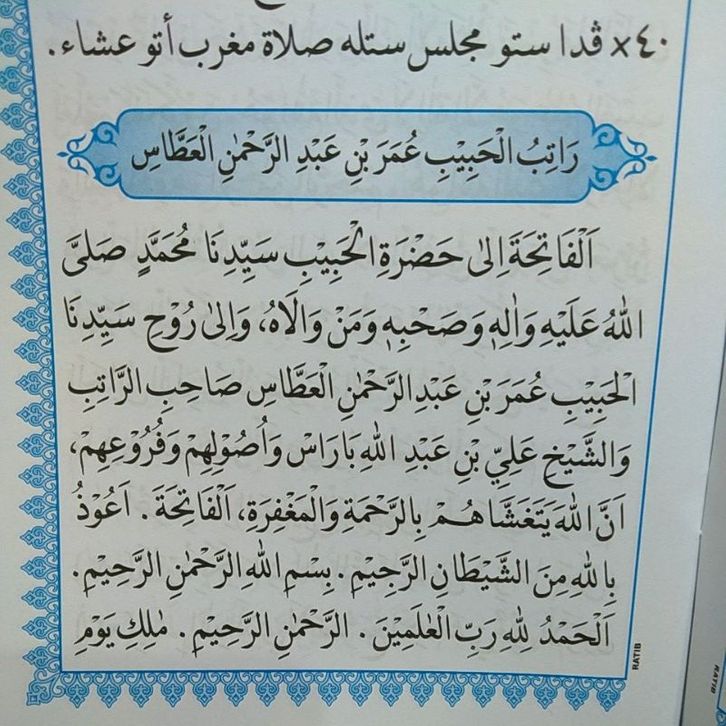 ٤٠× ڤدا ستو مجلس ستله صلاة مغرب أتو عشاء.
رَاتِبُ الْحَبِيْبِ عُمَرَ بْنِ عَبْدِ الرَّحْمٰنِ الْعَطَّاسِ
اَلْفَاتِحَةَ اِلٰى حَضْرَةِ الْحَبِيْبِ سَيِّدِنَا مُحَمَّدٍ صَلَّى
اللهُ عَلَيْهِ وَاٰلِهٖ وَصَحْبِهٖ وَمَنْ وَالَاهُ، وَاِلٰى رُوْحِ سَيِّدِنَا
الْحَبِيْبِ عُمَرَ بْنِ عَبْدِ الرَّحْمٰنِ الْعَطَّاسِ صَاحِبِ الرَّاتِبِ
وَالشَّيْخِ عَلِيِّ بْنِ عَبْدِ اللهِ بَارَاسْ وَاُصُوْلِهِمْ وَفُرُوْعِهِمْ،
اَنَّ اللهَ يَتَغَشَّاهُمْ بِالرَّحْمَةِ وَالْمَغْفِرَةِ، اَلْفَاتِحَةَ. اَعُوْذُ
بِاللهِ مِنَ الشَّيْطَانِ الرَّجِيْمِ. بِسْمِ اللهِ الرَّحْمٰنِ الرَّحِيْمِ.
اَلْحَمْدُ لِلّٰهِ رَبِّ الْعٰلَمِيْنَ. الرَّحْمٰنِ الرَّحِيْمِ. مٰلِكِ يَوْمِ
RATIB
RATIB